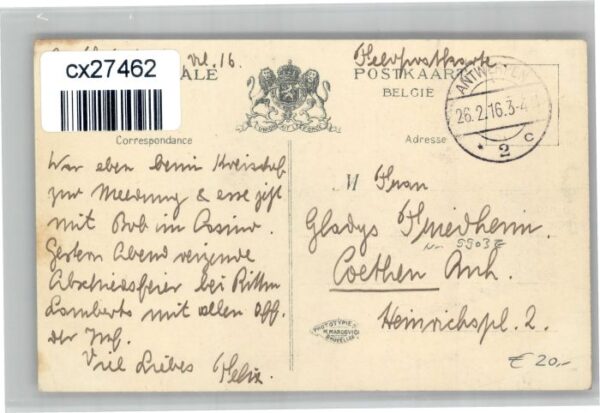 cx27462
Vil. 16.
Feldpostkarte.
ALE
POSTKAART
BELGIË
ANTWERPEN
26.2.16.3-4
* 2 c
L'UNION FAIT LA FORCE
Correspondance
Adresse
War eben beim Kreischef
zur Meldung & esse jetzt
mit Bob im Casino.
Gestern Abend reizende
Abschiedsfeier bei Rittm
Lamberts mit allen Off.
der Inf.
Viel Liebes Felix.
Frau
Gladys Friedheim.
Nr 55037
Coethen Anh.
Heinrichspl. 2.
PHOTOTYPIE
MARCOVICI
BRUXELLES
€ 20,-